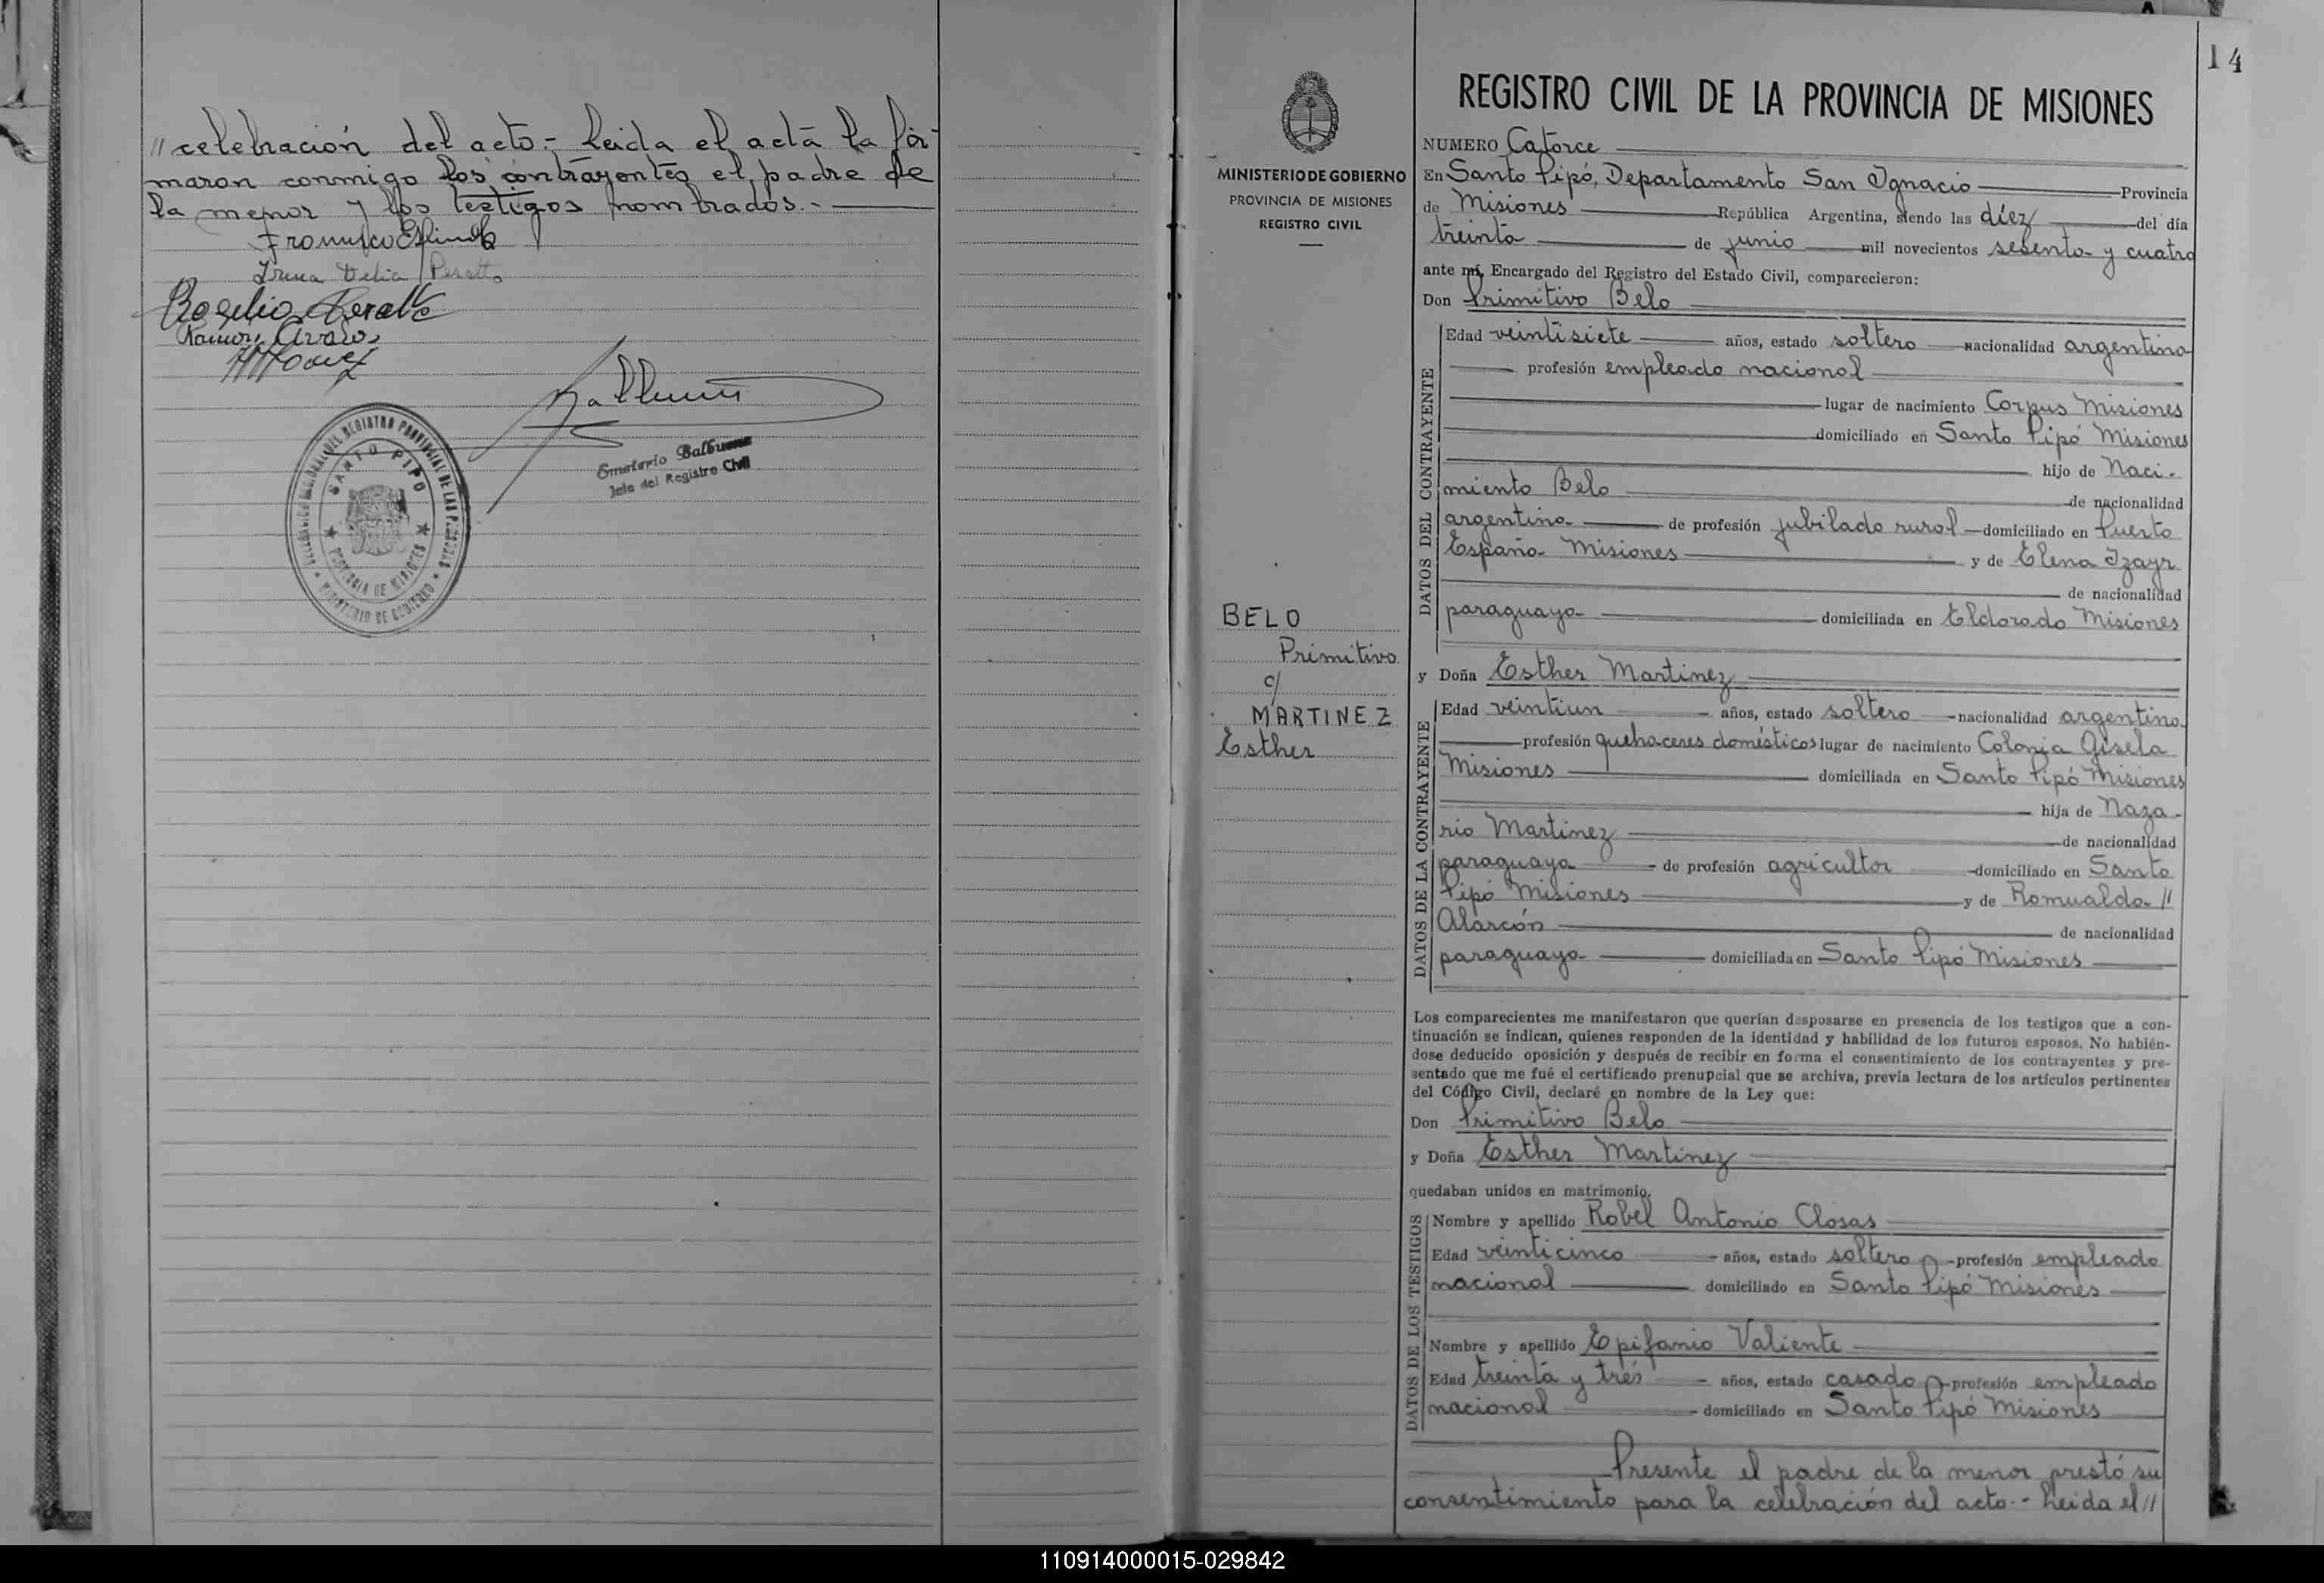 // celebración del acto.- Leida el acta la fir-
maron conmigo los contrayentes el padre de
la menor y los testigos nombrados.-
Irma Delia Peralta
Rogelio Peralta
Emeterio Balbuena
Jefe del Registro Civil
SANTO PIPO
PROVINCIA DE MISIONES
MINISTERIO DE GOBIERNO
14
MINISTERIO DE GOBIERNO
PROVINCIA DE MISIONES
REGISTRO CIVIL
BELO
Primitivo
c/
MARTINEZ
Esther
REGISTRO CIVIL DE LA PROVINCIA DE MISIONES
NUMERO Catorce
En Santo Pipó, Departamento San Ignacio Provincia
de Misiones República Argentina, siendo las diez del día
treinta de junio mil novecientos sesenta y cuatro
ante mí, Encargado del Registro del Estado Civil, comparecieron:
Don Primitivo Belo
DATOS DEL CONTRAYENTE
Edad veintisiete años, estado soltero nacionalidad argentina
profesión empleado nacional
lugar de nacimiento Corpus Misiones
domiciliado en Santo Pipó Misiones
hijo de Naci-
miento Belo de nacionalidad
argentina de profesión jubilado rural domiciliado en Puerto
España Misiones y de Elena Izayr
de nacionalidad
paraguaya domiciliada en Eldorado Misiones
y Doña Esther Martinez
DATOS DE LA CONTRAYENTE
Edad veintiun años, estado soltera nacionalidad argentina
profesión quehaceres domésticos lugar de nacimiento Colonia Gisela
Misiones domiciliada en Santo Pipó Misiones
hija de Naza-
rio Martinez de nacionalidad
paraguaya de profesión agricultor domiciliado en Santo
Pipó Misiones y de Romualda //
Alarcón de nacionalidad
paraguaya domiciliada en Santo Pipó Misiones
Los comparecientes me manifestaron que querían desposarse en presencia de los testigos que a con-
tinuación se indican, quienes responden de la identidad y habilidad de los futuros esposos. No habién-
dose deducido oposición y después de recibir en forma el consentimiento de los contrayentes y pre-
sentado que me fué el certificado prenupcial que se archiva, previa lectura de los artículos pertinentes
del Código Civil, declaré en nombre de la Ley que:
Don Primitivo Belo
y Doña Esther Martinez
quedaban unidos en matrimonio.
DATOS DE LOS TESTIGOS
Nombre y apellido Robel Antonio Closas
Edad veinticinco años, estado soltero profesión empleado
nacional domiciliado en Santo Pipó Misiones
Nombre y apellido Epifanio Valiente
Edad treinta y tres años, estado casado profesión empleado
nacional domiciliado en Santo Pipó Misiones
Presente el padre de la menor prestó su
consentimiento para la celebración del acto.- Leida el //
110914000015-029842